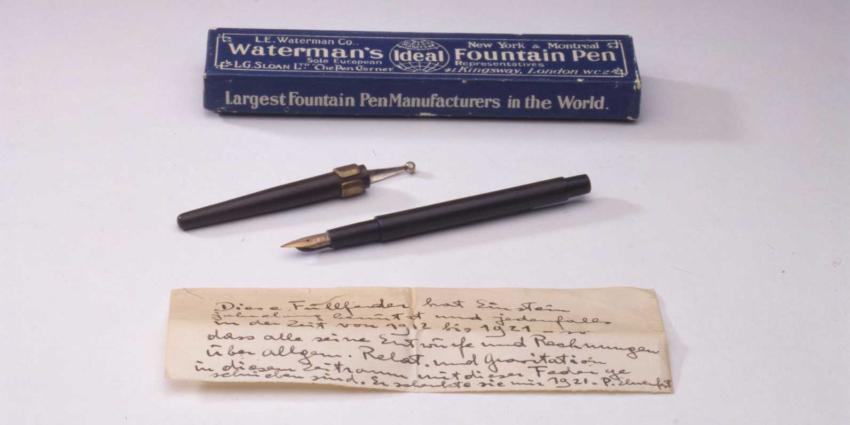 L.E. Waterman Co.. New York & Montreal
Waterman's Ideal Fountain Pen
Sole European Representatives
L.G. SLOAN LTD The Pen Corner 41 Kingsway, London WC2
Largest Fountain Pen Manufacturers in the World.
Diese Füllfeder hat Einstein
benützt und jedenfalls
in der Zeit von 1912 bis 1921 so
dass alle seine Entwürfe und Rechnungen
über allgem. Relat. und Gravitation
in diesem Zeitraum mit dieser Feder ge
schrieben sind. Er schenkte sie mir 1921. P. Ehrenfest